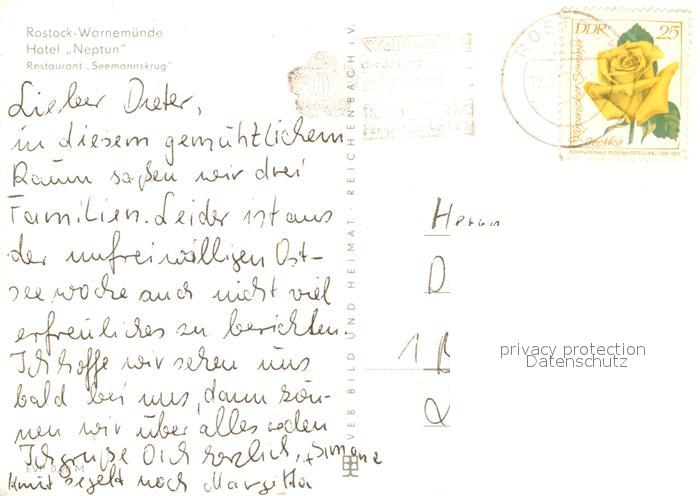 Rostock-Warnemünde
Hotel „Neptun"
Restaurant „Seemannskrug"
Lieber Dieter,
in diesem gemühtlichem
Raum saßen wir drei
Familien. Leider ist aus
der unfreiwilligen Ost-
see woche auch nicht viel
erfreuliches zu berichten.
Ich hoffe wir sehen uns
bald bei uns, dann kön-
nen wir über alles reden
Ich grüße Dich herzlich,
+ Simone
Knut segelt noch Margitta
EVP 0,20 M
VEB BILD UND HEIMAT · REICHENBACH i. V.
ROST
12.7
DDR 25
Izetka Köpenicker Sommer
INTERNATIONALE ROSENAUSSTELLUNG DDR 1972
Herrn
D
1
privacy protection
Datenschutz